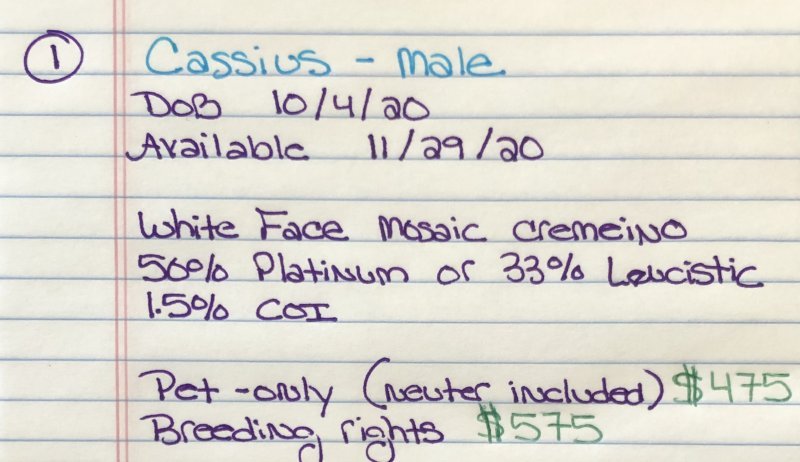 1 Cassius - male
DOB 10/4/20
Available 11/29/20
White Face mosaic cremeino
50% Platinum or 33% Leucistic
1.5% COI
Pet-only (neuter included) $475
Breeding rights $575